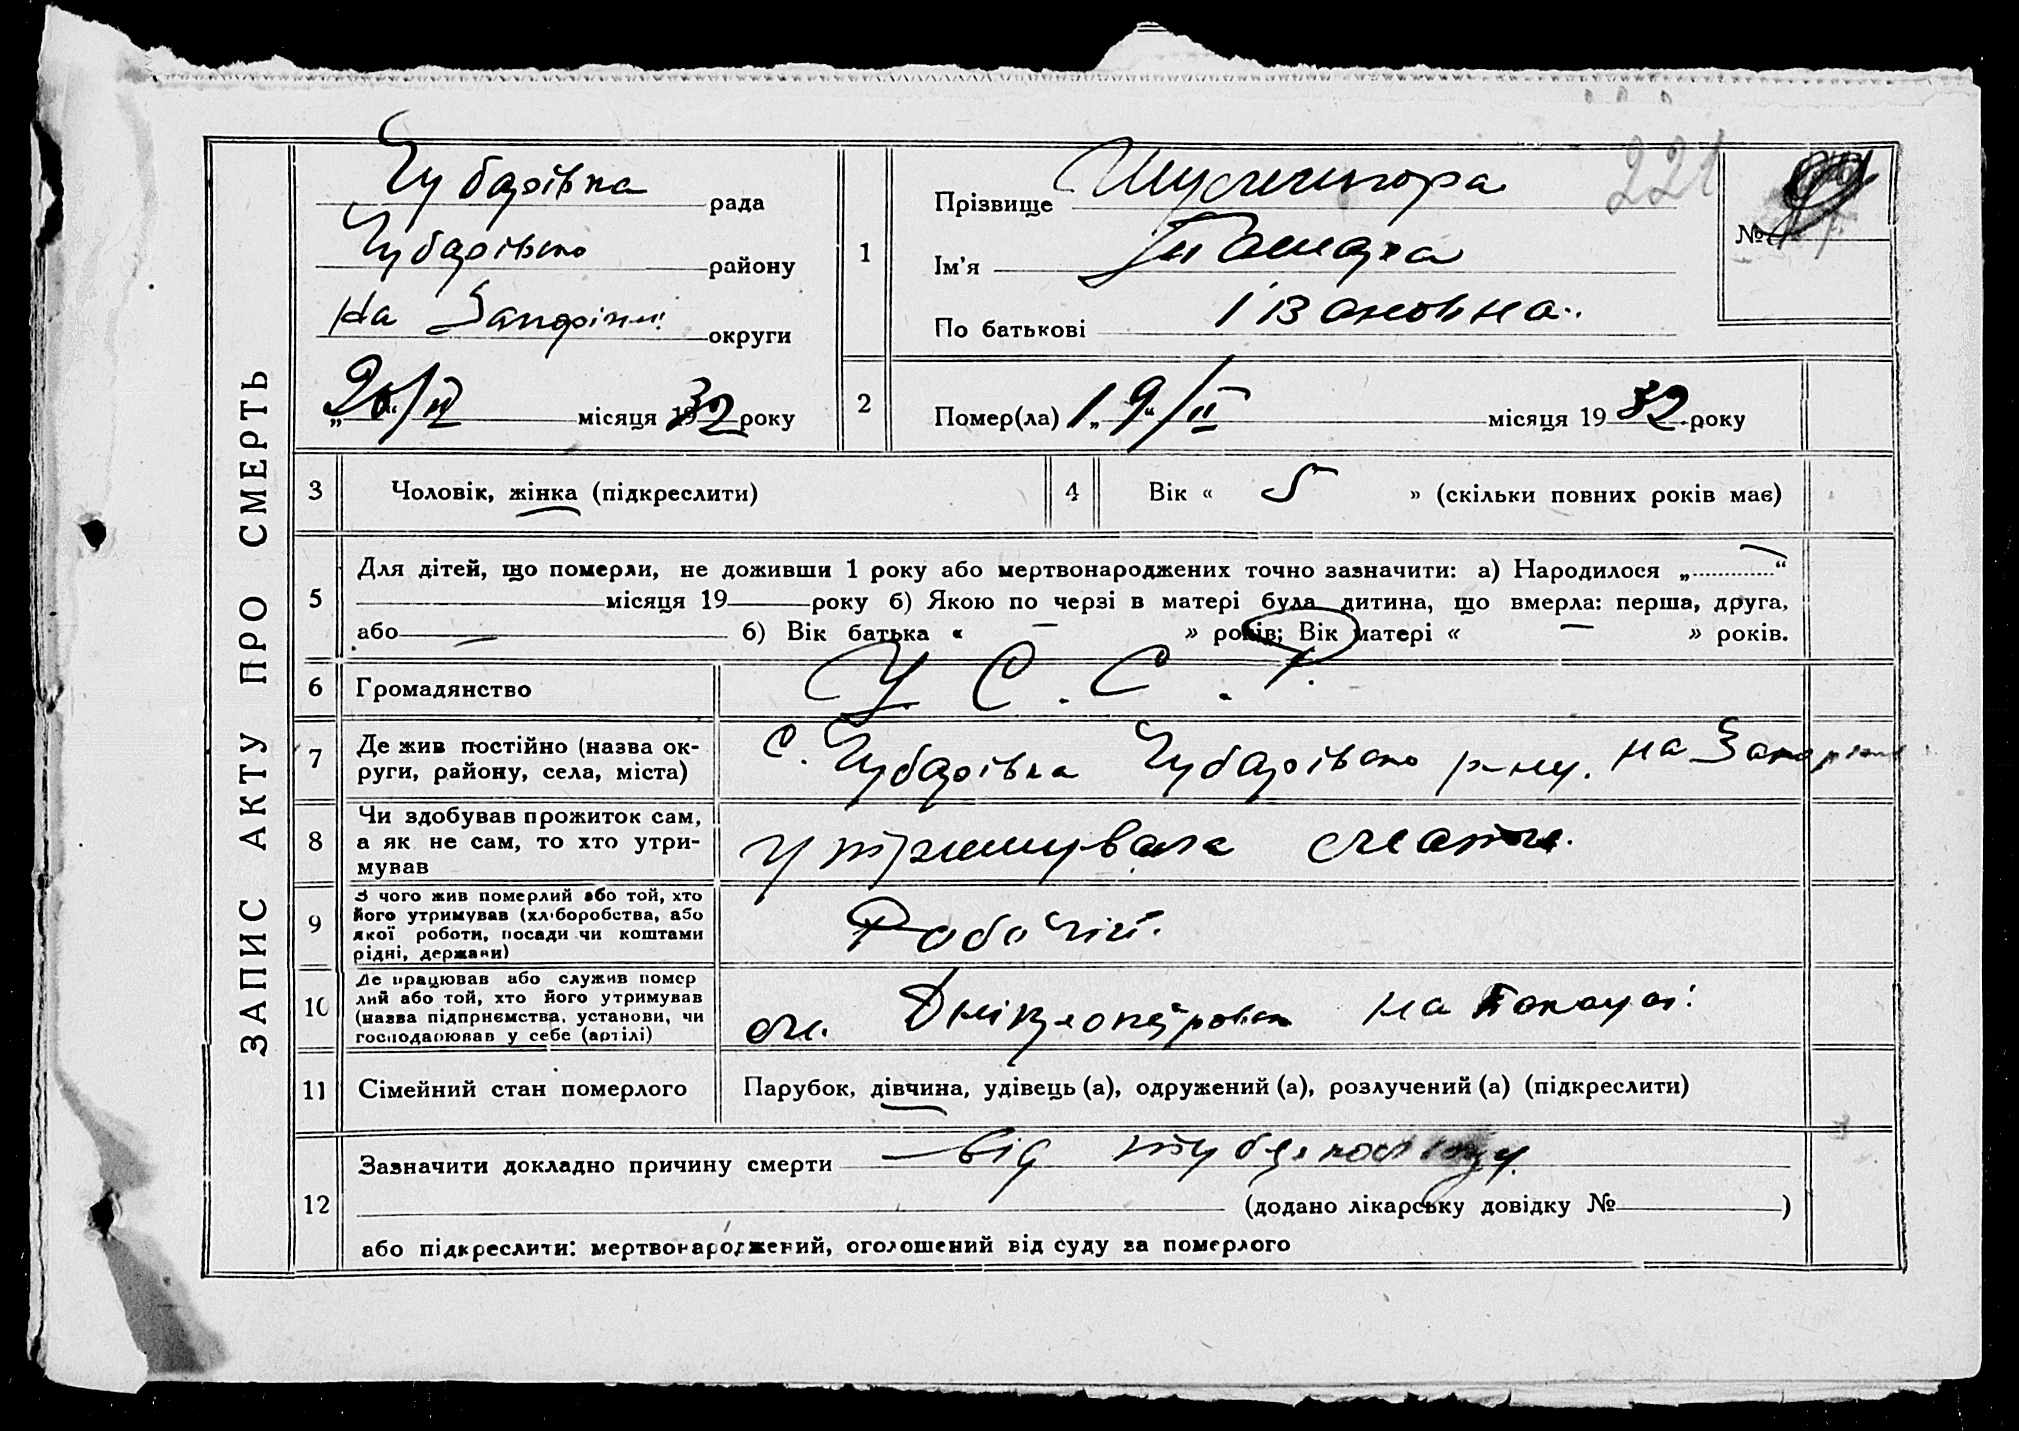 ЗАПИС АКТУ ПРО СМЕРТЬ
Чубарівка рада
Чубарівсько району
На Запоріжжі округи
„20“/II місяця 1932 року
221
№
1
Прізвище
Ім'я Тамара
По батькові Івановна
2
Помер(ла) „19“/II місяця 1932 року
3 Чоловік, жінка (підкреслити)
4 Вік « 5 » (скільки повних років має)
5
Для дітей, що померли, не доживши 1 року або мертвонароджених точно зазначити: а) Народилося „ “
місяця 19 року б) Якою по черзі в матері була дитина, що вмерла: перша, друга,
або — б) Вік батька « — » років; Вік матері « — » років.
6 Громадянство У.С.С.Р.
7 Де жив постійно (назва ок-
руги, району, села, міста)
с. Чубарівка Чубарівсько р-ну. на Запоріжжі
8 Чи здобував прожиток сам,
а як не сам, то хто утри-
мував
утримувала мати.
9 З чого жив померлий або той, хто
його утримував (хліборобства, або
якої роботи, посади чи коштами
рідні, держави)
Робочій.
10 Де працював або служив помер
лий або той, хто його утримував
(назва підприємства, установи, чи
господарював у себе (артілі)
на
11 Сімейний стан померлого
Парубок, дівчина, удівець (а), одружений (а), розлучений (а) (підкреслити)
12
Зазначити докладно причину смерти — від туберкольозу.
(додано лікарську довідку № )
або підкреслити: мертвонароджений, оголошений від суду за померлого